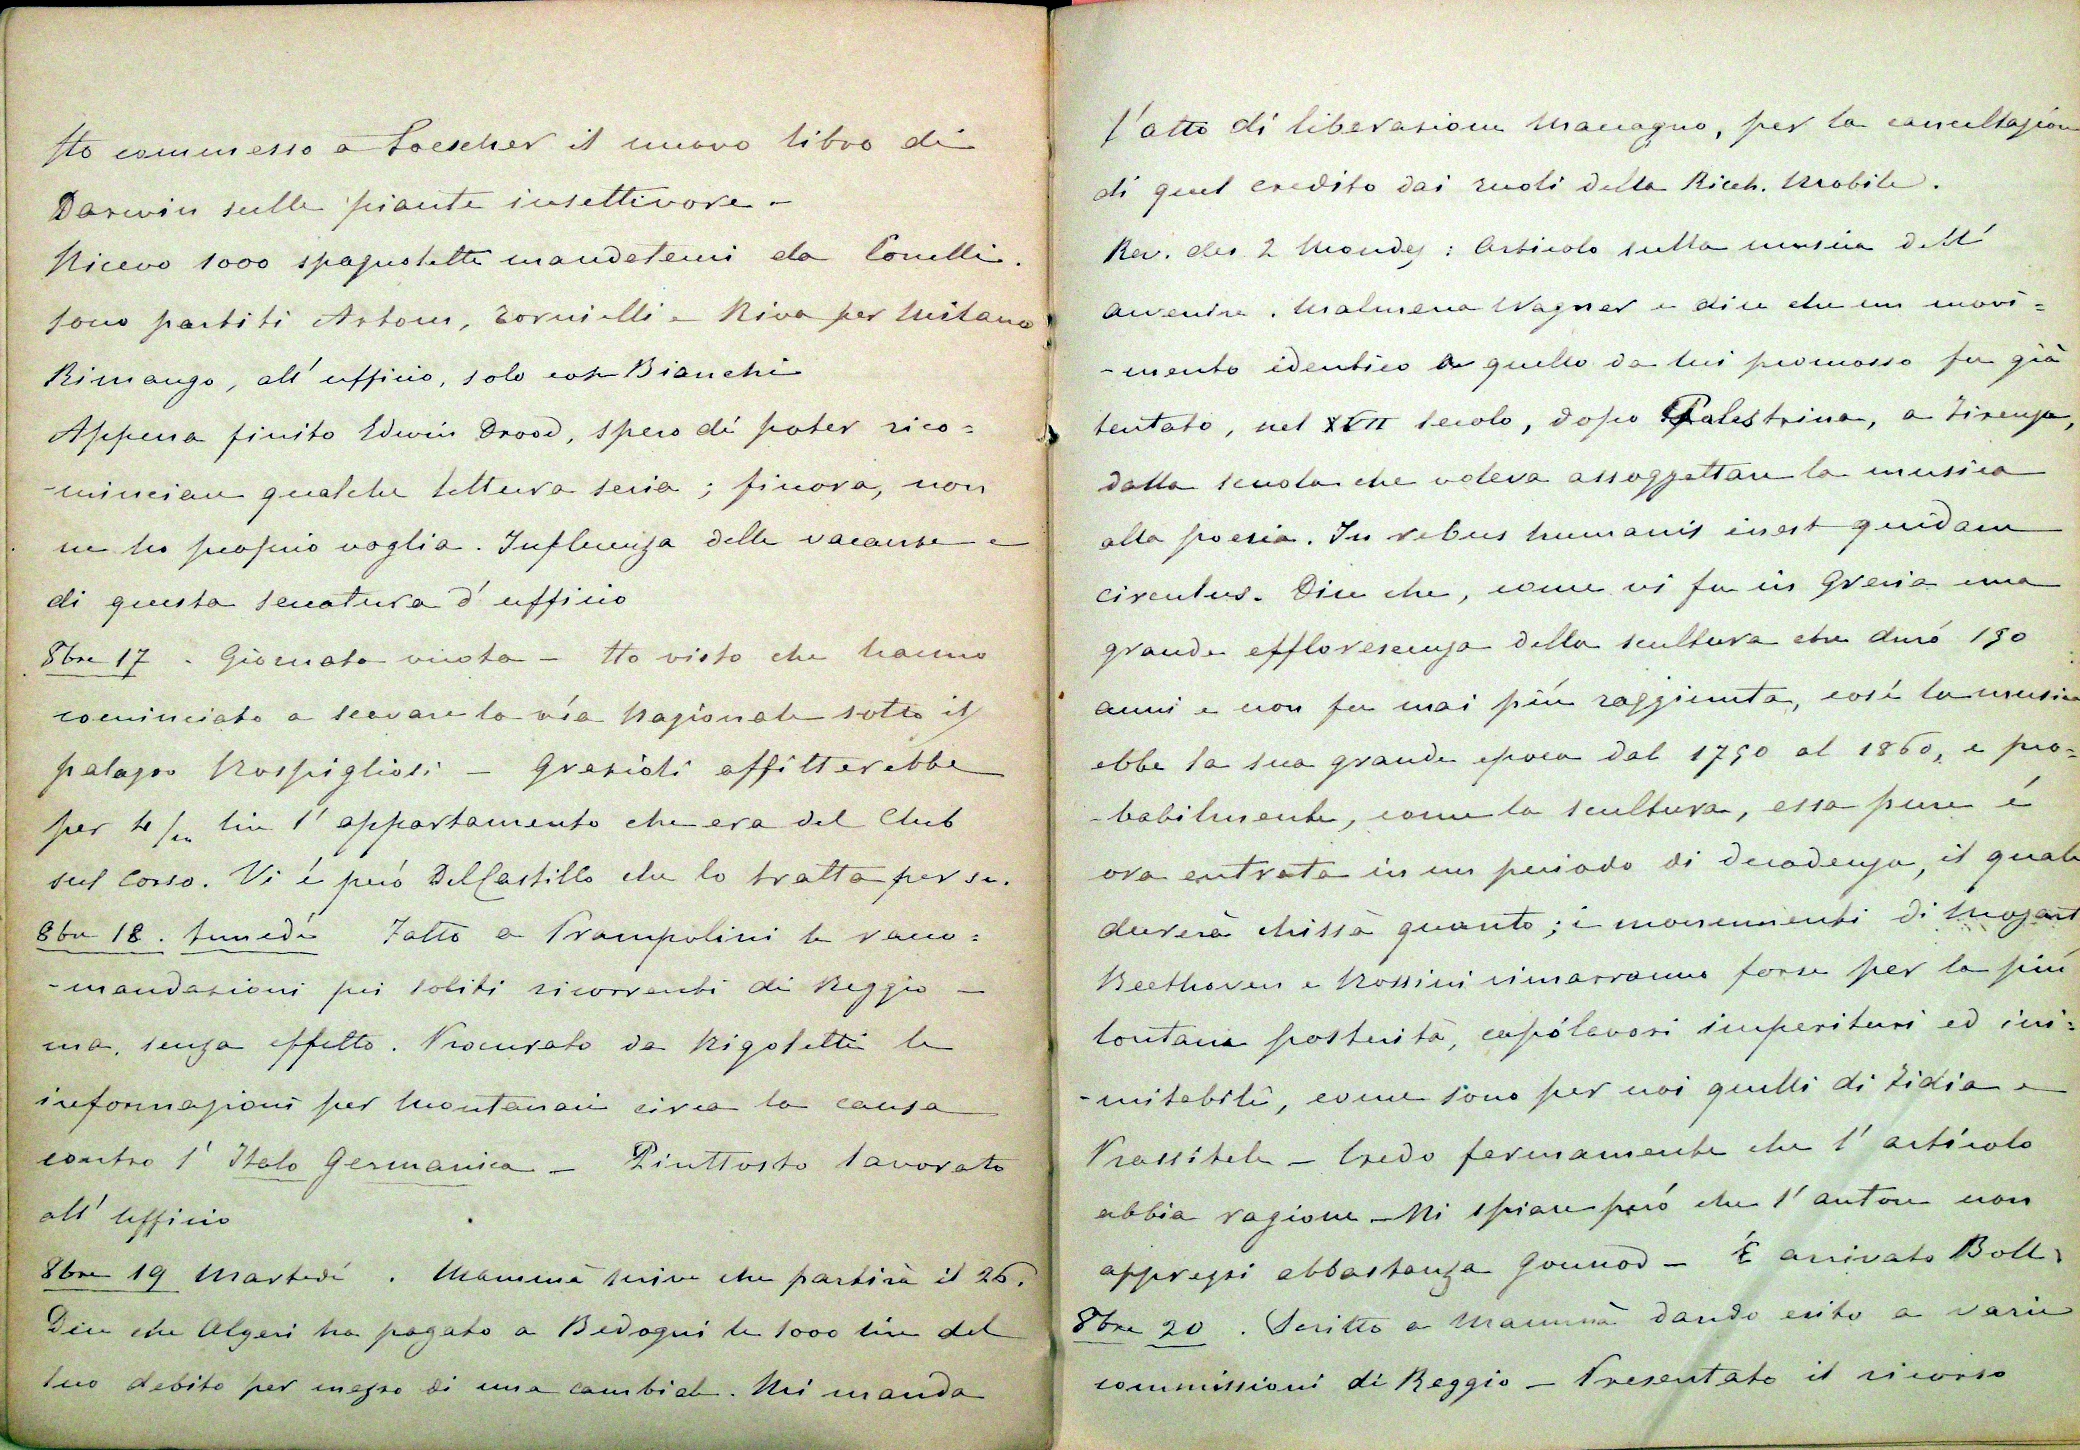 Ho commesso a Loescher il nuovo libro di
Darwin sulle piante insettivore -
Ricevo 1000 spagnolette mandatemi da Conelli.
Sono partiti Artom, Tornielli e Riva per Milano
Rimango, all' ufficio, solo con Bianchi
Appena finito Edwin Drood, spero di poter rico=
-minciare qualche lettura seria ; finora, non
ne ho proprio voglia. Influenza delle vacanze e
di questa seccatura d' ufficio
8bre 17 . Giornata vuota - Ho visto che hanno
cominciato a scavare la via Nazionale sotto il
palazzo Rospigliosi - Grazioli affitterebbe
per 4/m lire l' appartamento che era del Club
sul Corso. Vi è però Del Castillo che lo tratta per se.
8bre 18. Lunedì Fatto a Prampolini le racco=
-mandazioni pei soliti ricorrenti di Reggio -
ma, senza effetto. Procurato da Rigoletti le
informazioni per Montanari circa la causa
contro l' Italo Germanica - Piuttosto lavorato
all' ufficio
8bre 19 Martedì . Mammà scrive che partirà il 26.
Dice che Algeri ha pagato a Bedogni le 1000 lire del
suo debito per mezzo di una cambiale. Mi manda
l'atto di liberazione Macagno, per la cancellazione
di quel credito dai ruoli della Ricch. Mobile.
Rev. des 2 Mondes : Articolo sulla musica dell'
avvenire. Malmena Wagner e dice che un movi=
-mento identico a quello da lui promosso fu già
tentato, nel XVII secolo, dopo Palestrina, a Firenze,
dalla scuola che voleva assoggettare la musica
alla poesia. In rebus humanis inest quidam
circulus. Dice che, come vi fu in Grecia una
grande efflorescenza della scultura che durò 150
anni e non fu mai più raggiunta, così la musica
ebbe la sua grande epoca dal 1750 al 1860, e pro=
-babilmente, come la scultura, essa pure è
ora entrata in un periodo di decadenza, il quale
durerà chissà quanto ; i monumenti di Mozart
Beethoven e Rossini rimarranno forse per la più
lontana posterità, capolavori imperituri ed ini=
-mitabili, come sono per noi quelli di Fidia e
Prassitele - Credo fermamente che l' articolo
abbia ragione - Mi spiace però che l' autore non
apprezzi abbastanza Gounod - È arrivato Boll.
8bre 20 . Scritto a Mammà dando esito a varie
commissioni di Reggio - Presentato il ricorso